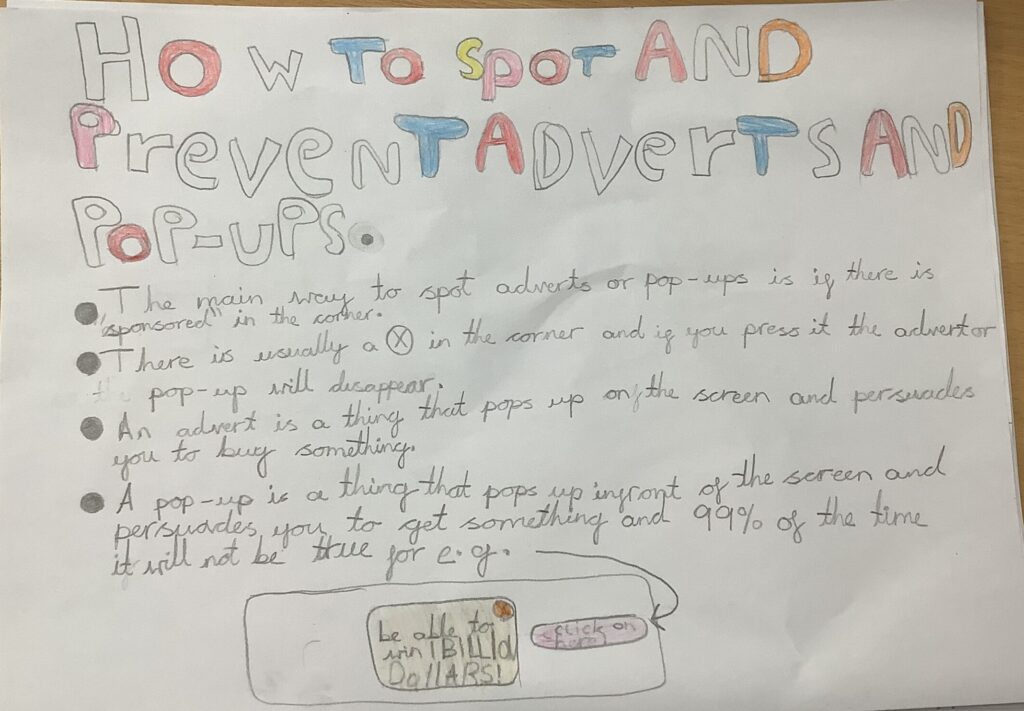 How To Spot AND
Prevent Adverts AND
Pop-ups.
The main way to spot adverts or pop-ups is if there is
"sponsored" in the corner.
There is usually a ⓧ in the corner and if you press it the advert or
the pop-up will disappear.
An advert is a thing that pops up on the screen and persuades
you to buy something.
A pop-up is a thing that pops up infront of the screen and
persuades you to get something and 99% of the time
it will not be true for e.g.
be able to
win 1 BILLId
DollARS!
click on
here!